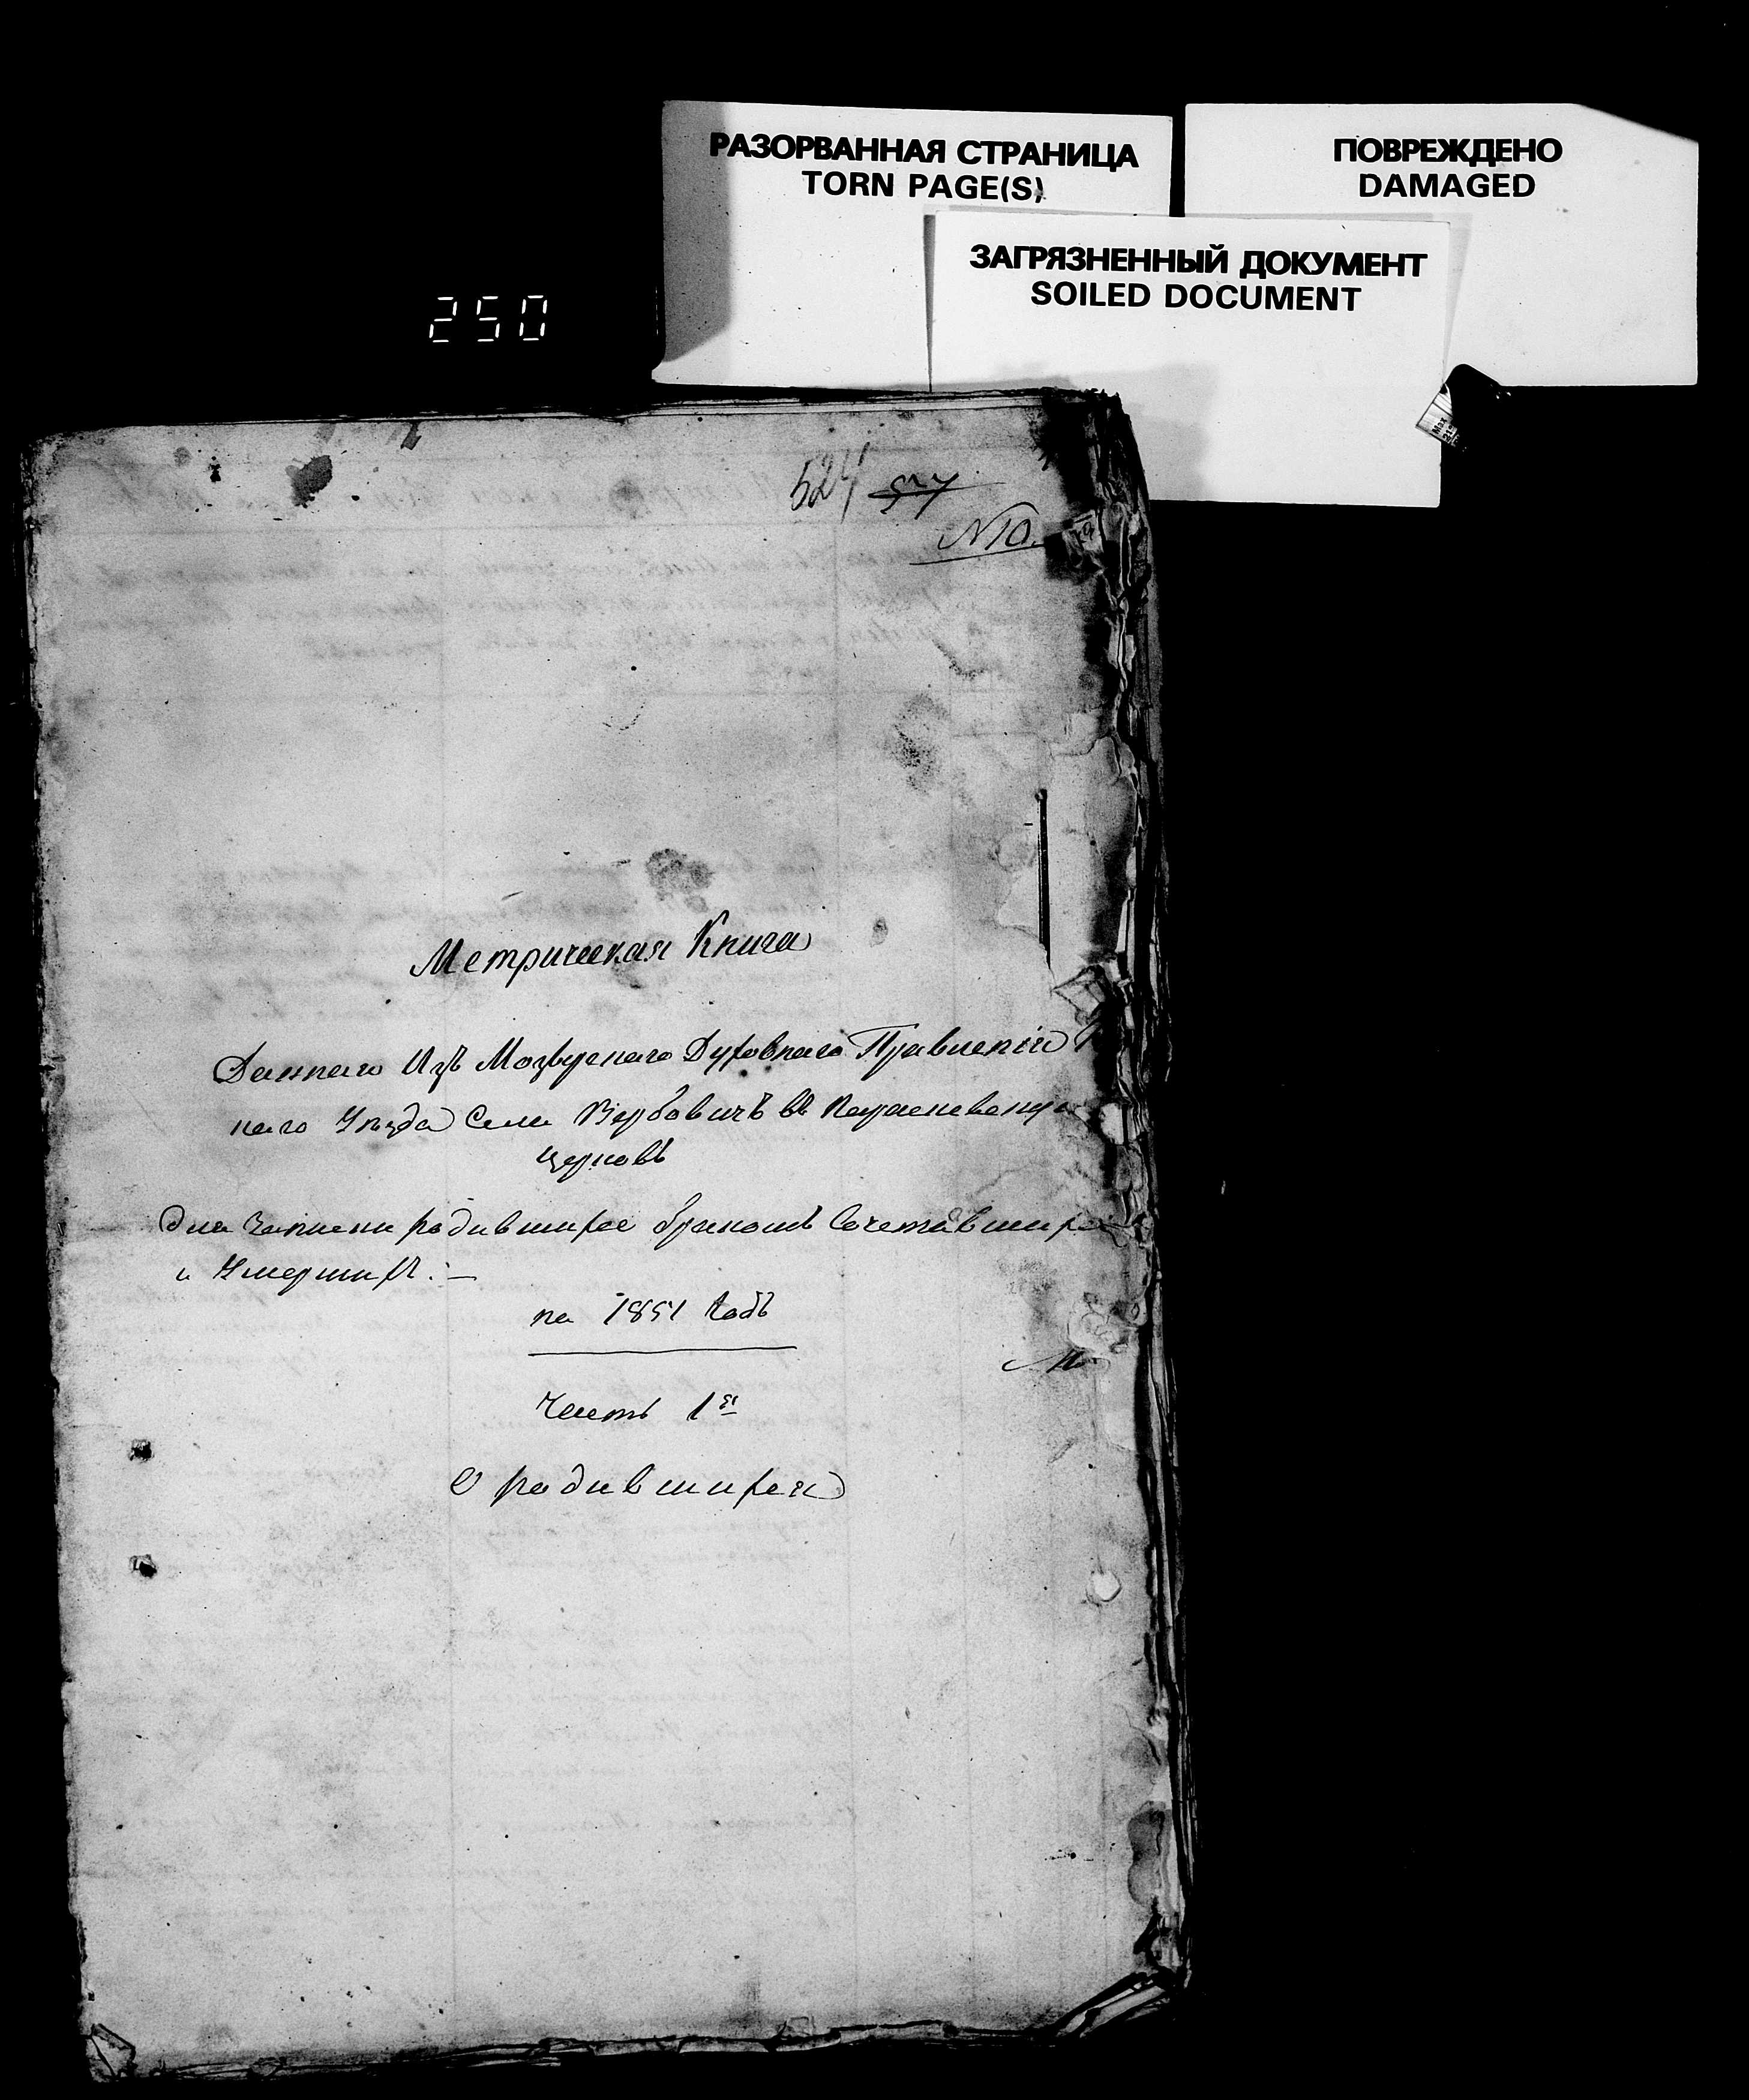 РАЗОРВАННАЯ СТРАНИЦА
TORN PAGE(S)
ПОВРЕЖДЕНО
DAMAGED
ЗАГРЯЗНЕННЫЙ ДОКУМЕНТ
SOILED DOCUMENT
250
524
N 10.
Метрическая Книга
Даннаго Изъ Мозырскаго Духовнаго Правленія
каго Уѣзда Села Вербовичъ въ
церковь
для записки родившихся бракомъ Сочетавшихся
и Умершихъ. —
на 1851 Годъ
Часть 1я
О родившихся